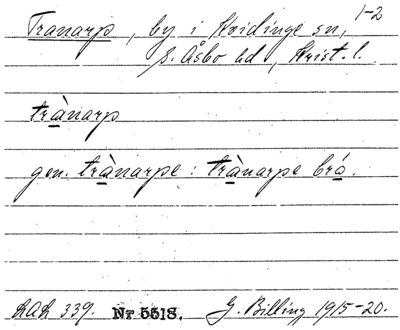 1-2
Tranarp, by i Kvidinge sn,
S. Åsbo hd, Krist. l.
trànarp
gen. trànarpe: trànarpe bró.
LAL 339. Nr 5518. G. Billing 1915-20.